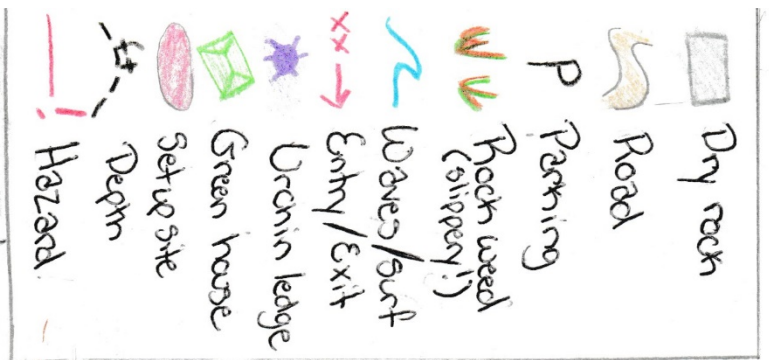 Dry rock
Road
P Parking
Rock weed
(slippery!)
Waves/surf
xx Entry/Exit
Urchin ledge
Green house
Set up site
ft Depth
! Hazard